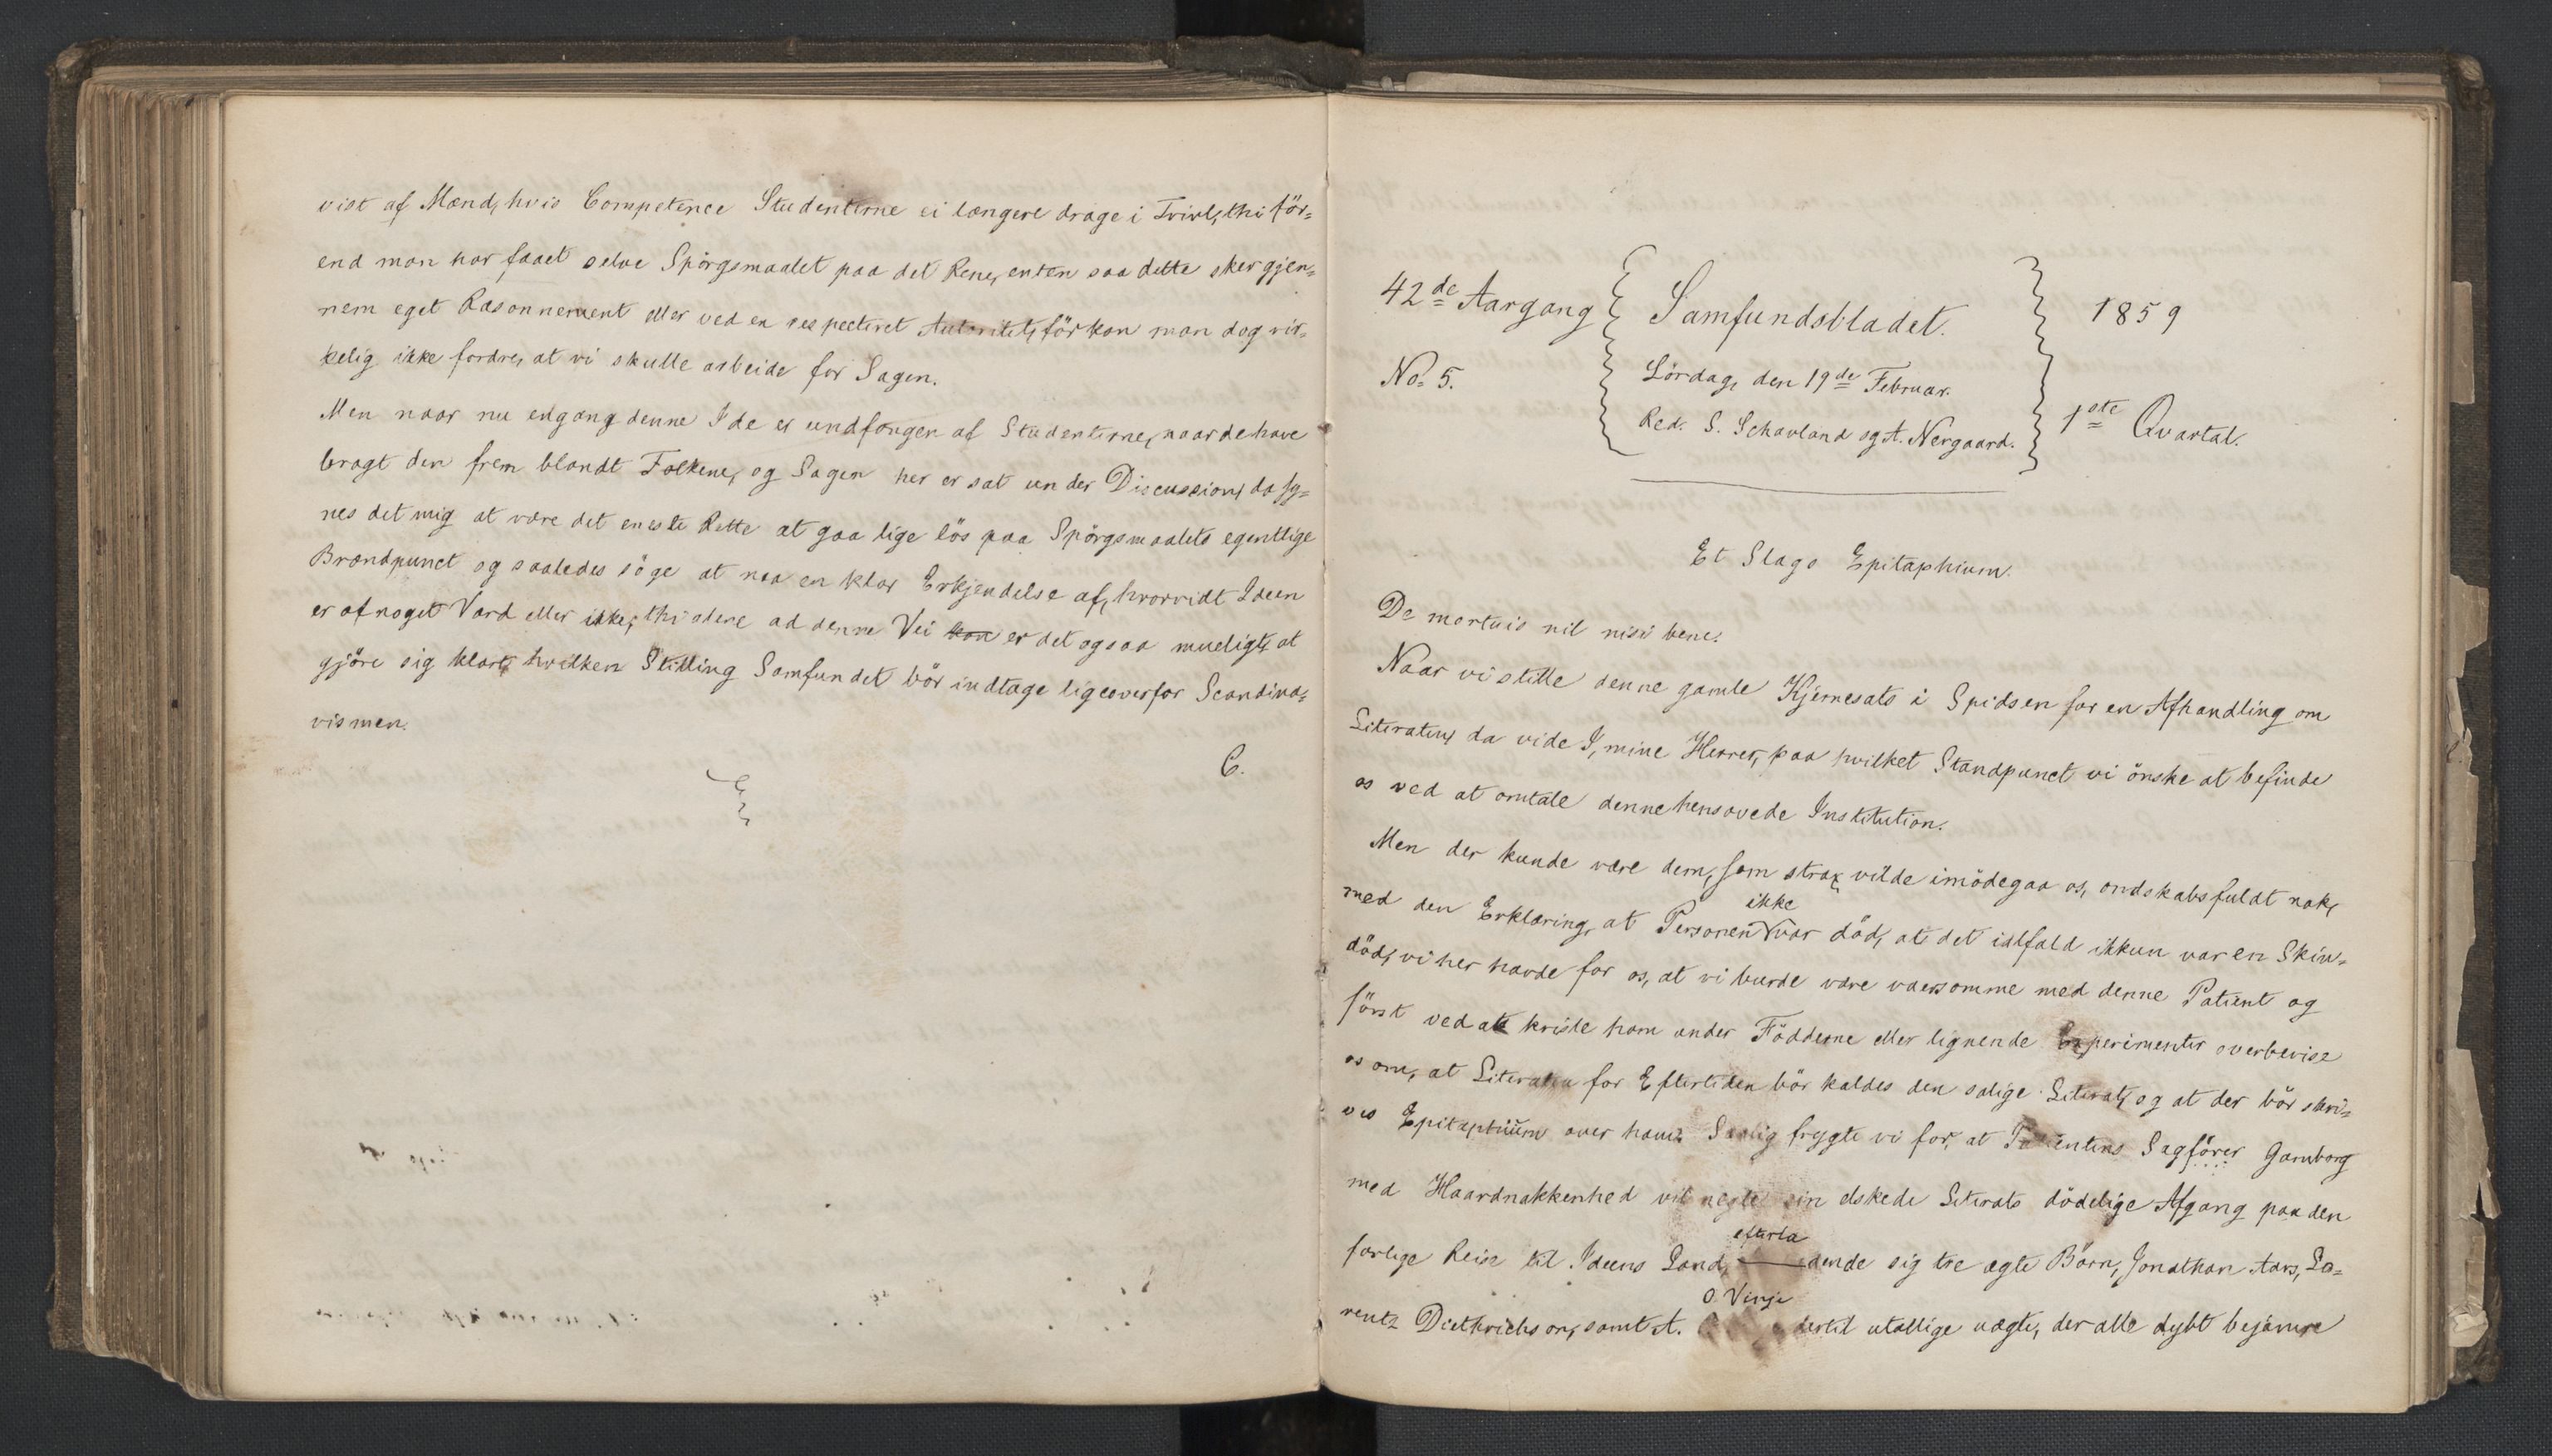 vist af Mænd, hvis Competence Studenterne ei længere drage i Tvivl, thi för=
end man har faaet selve Spörgsmaalet paa det Rene, enten saa dette sker gjen=
nem eget Ræsonnement eller ved en respecteret Autoritet, för kan man dog vir=
kelig ikke fordre, at vi skulle arbeide for Sagen.
Men naar nu engang denne Ide er undfangen af Studenterne, naar de have
bragt den frem blandt Folkene, og Sagen her er sat under Discussion, da sy=
nes det mig at være det eneste Rette at gaa lige lös paa Spörgsmaalets egentlige
Brændpunct og saaledes söge at naa en klar Erkjendelse af, hvorvidt Ideen
er af noget Værd eller ikke; thi alene ad denne Vei kan er det ogsaa mueligt, at
gjöre sig klart, hvilken Stilling Samfundet bör indtage ligeoverfor Scandina=
vismen.
C.
42de Aargang
No. 5.
Samfundsbladet.
Lördag, den 19de Februar.
Red. S. Schavland og A. Nergaard.
1859
1ste Qvartal.
Et Slags Epitaphium.
De mortuis nil nisi bene.
Naar vi stille denne gamle Kjernesats i Spidsen for en Afhandling om
Literaten, da vide I, mine Herrer, paa hvilket Standpunct vi önske at befinde
os ved at omtale denne hensovede Institution.
Men der kunde være dem, som strax vilde imödegaa os, ondskabsfuldt nok,
med den Erklæring, at Personen ikke var död, at det ialfald ikkun var en Skin=
död, vi her havde for os, at vi burde være varsomme med denne Patient og
först ved at kridle ham under Födderne eller lignende Experimenter overbevise
os om, at Literaten for Eftertiden bör kaldes den salige Literat, og at der bör skri=
ves Epitaphium over ham. Særlig frygte vi for, at Patientens Sagförer Gamborg
med Haardnakkenhed vil negte sin elskede Literats dödelige Afgang paa den
farlige Reise til Ideens Land, efterladende sig tre ægte Börn, Jonathan Aars, Lo=
rentz Diethrichson, samt A. O. Vinje dertil utallige uægte, der alle dybt bejamre